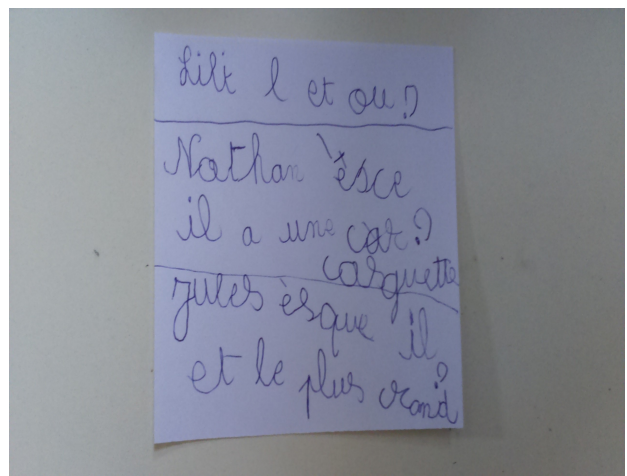 Lili l et ou?
Nathan èsce
il a une car?
casquette
jules èsque il
et le plus grand?